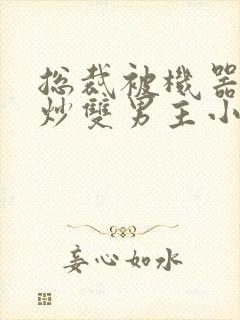 总裁被機器
炒雙男主小
妄心如水